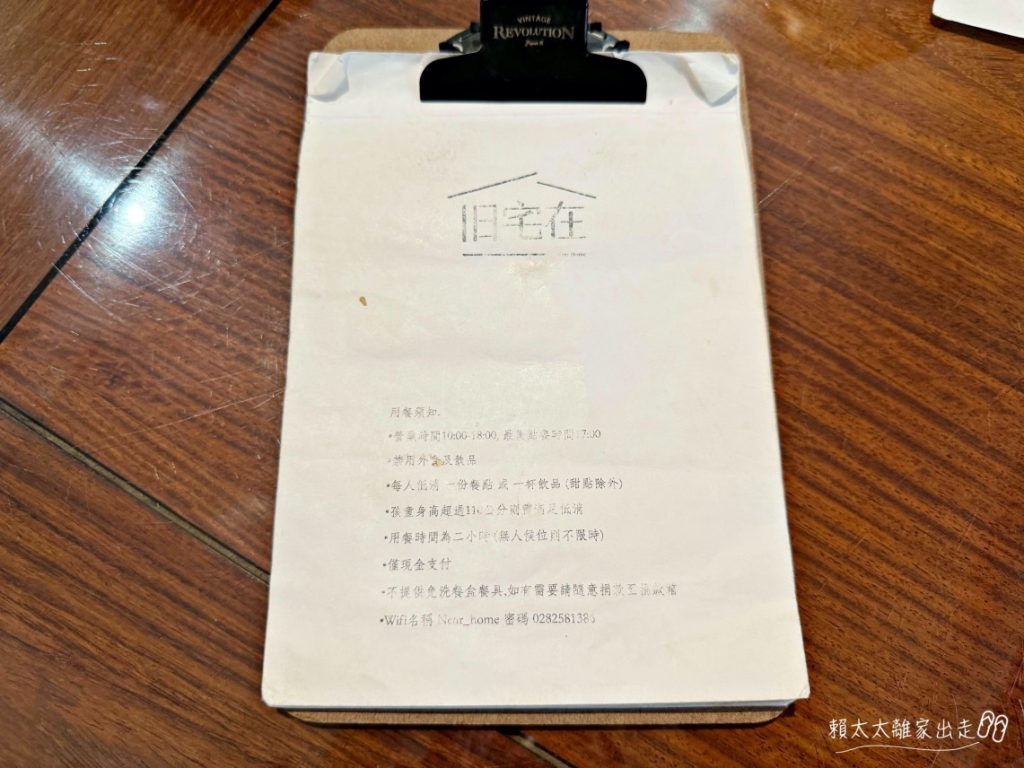 VINTAGE
REVOLUTION
旧宅在
用餐須知.
•營業時間10:00-18:00, 最後點餐時間17:00
•禁用外食及飲品
•每人低消 一份餐點 或 一杯飲品 (甜點除外)
•孩童身高超過110公分則需滿足低消
•用餐時間為二小時 (無人候位則不限時)
•僅現金支付
•不提供免洗餐盒餐具,如有需要請隨意捐款至捐款箱
•Wifi名稱 Near_home 密碼
賴太太離家出走